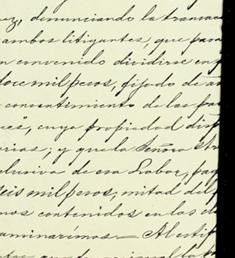 denunciando la transac
ambos litigantes, que para
n convenido dividirse en
doce mil pesos, fijado de
consentimiento de las par
cuya propiedad dis
rias; y que la Señora
clusiva de esa Labor, pag
seis mil pesos, mitad del
nos contenidos en las
aminarimos — Al